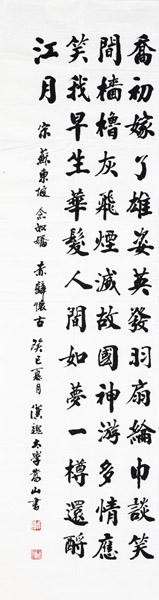 喬初嫁了雄姿英發羽扇綸巾談笑
間檣櫓灰飛煙滅故國神游多情應
笑我早生華髮人間如夢一樽還酹
江月 宋 蘇東坡 念奴嬌 赤壁懷古 癸巳夏月 嵩山書